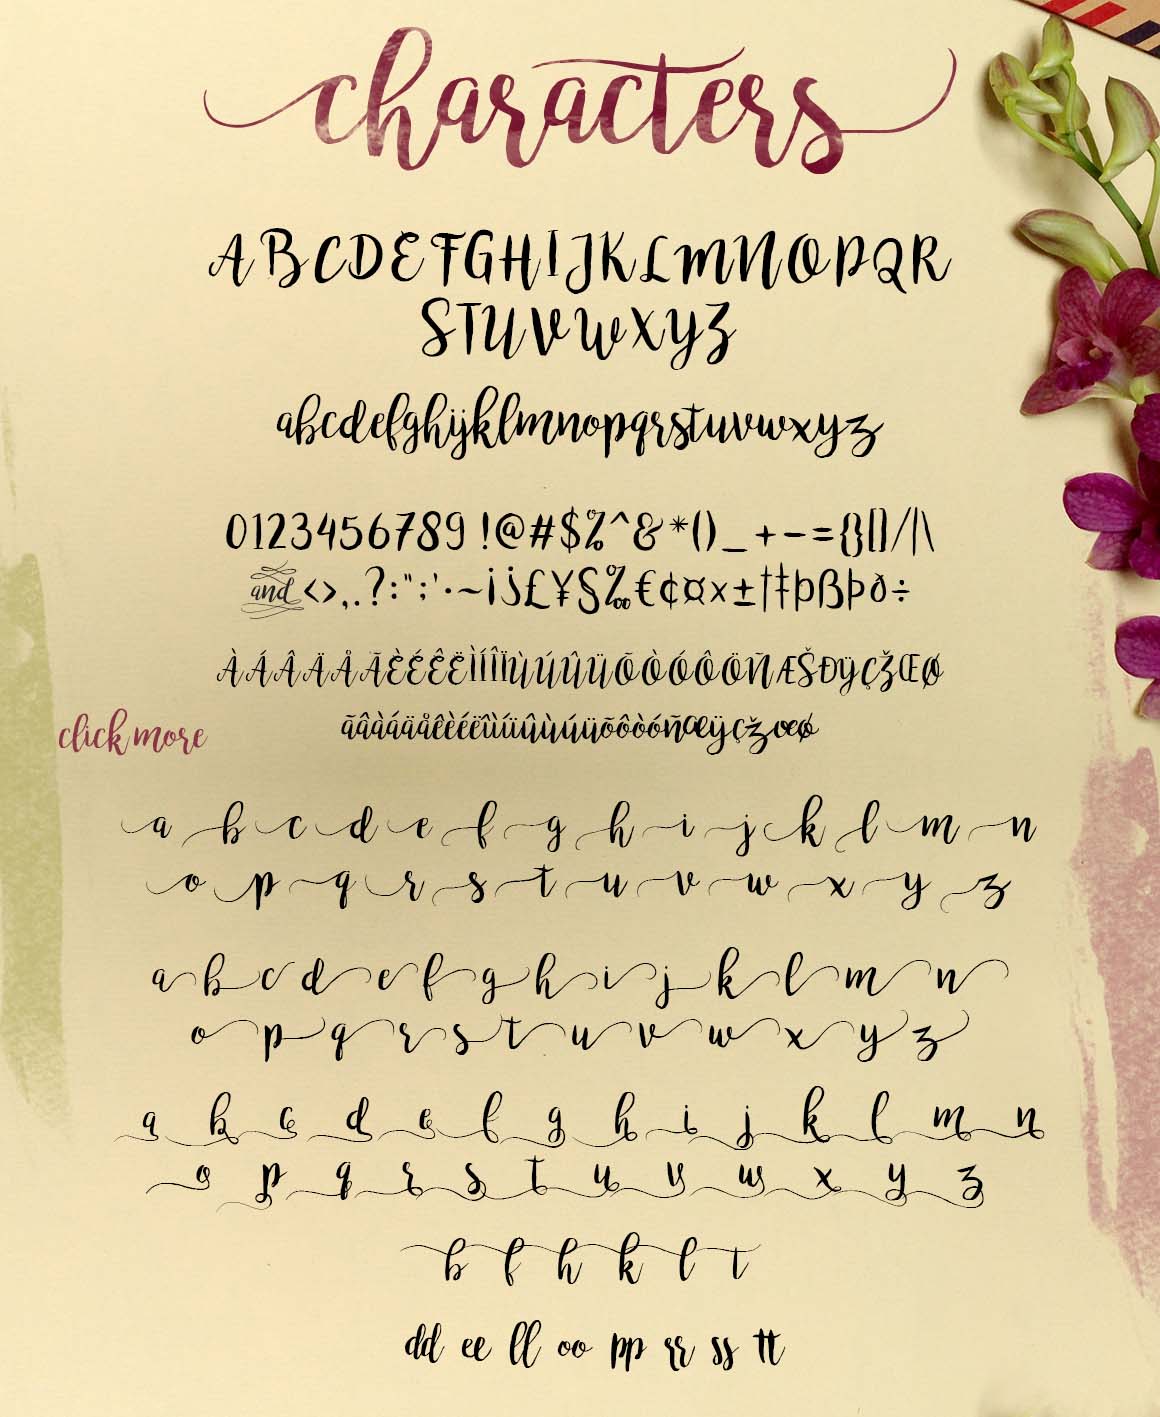 characters
ABCDEFGHIJKLMNOPQR
STUVWXYZ
abcdefghijklmnopqrstuvwxyz
0123456789 !@#$%^&*()_+-={}[]/|\
and<>,.?:";'·~¡j£¥§‰€¢¤×±†‡þßÞð÷
ÀÁÂÄÅÃÈÉÊËÌÍÎÏÙÚÛÜÕÒÓÔÖÑÆŠÐŸÇŽŒØ
click more
a b c d e f g h i j k l m n
o p q r s t u v w x y z
a b c d e f g h i j k l m n
o p q r s t u v w x y z
a b c d e f g h i j k l m n
o p q r s t u v w x y z
b f h k l t
dd ee ll oo pp rr ss tt